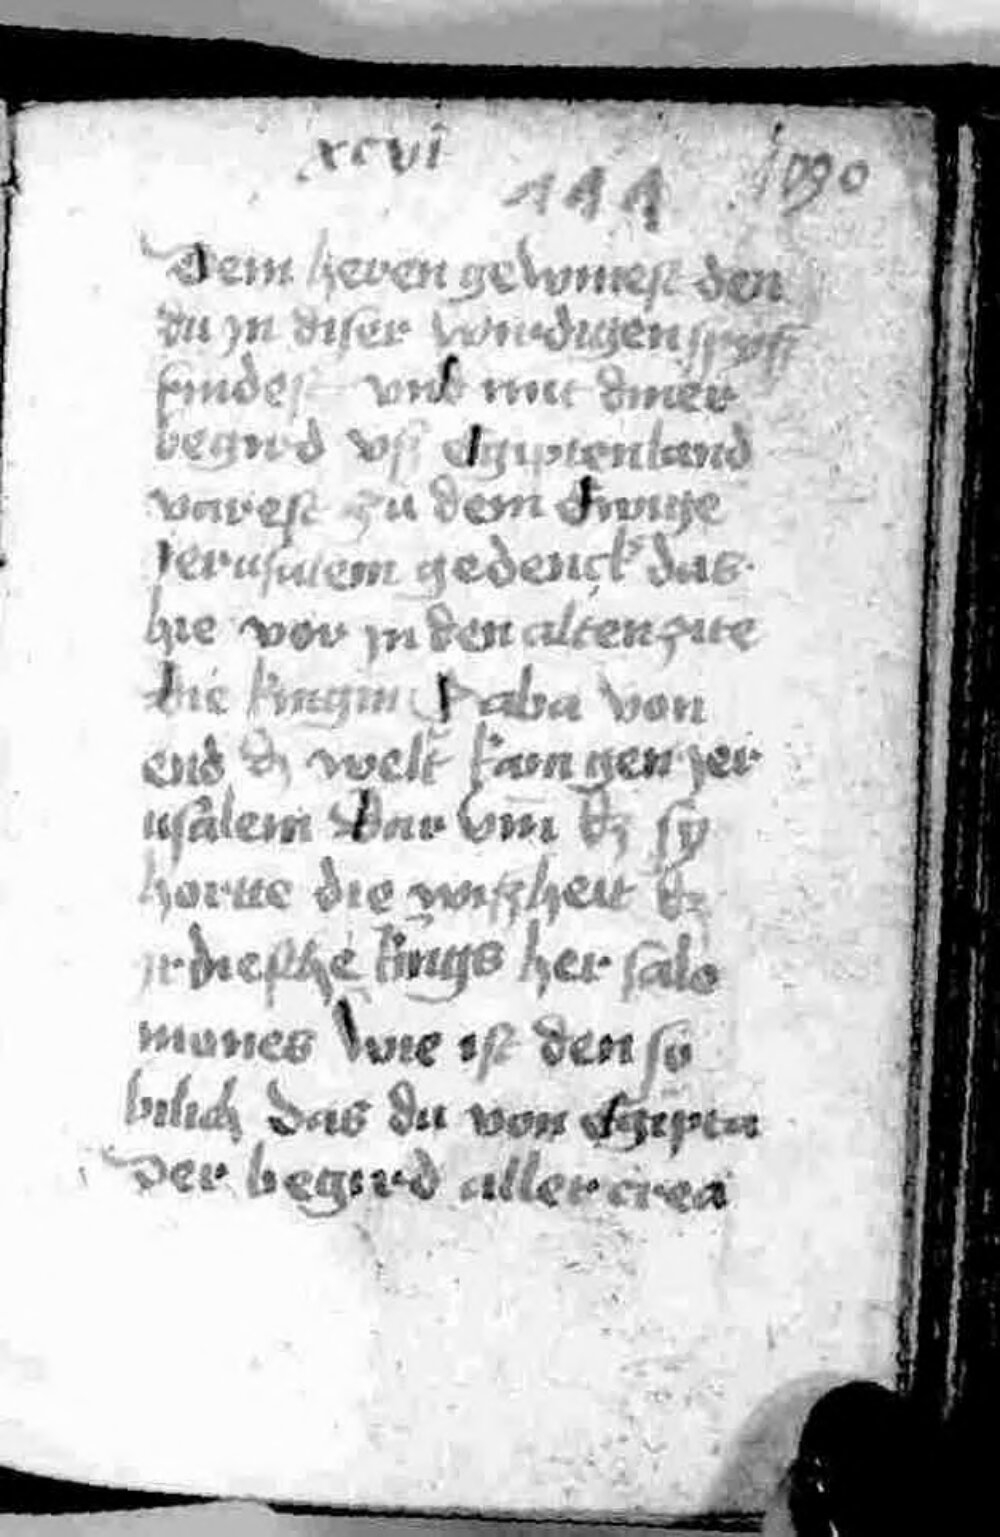 xcvi
111
190
Dem heren gewinnest den
du jn diser wirdigen spyss
findest vnd mit diner
begird vss Egiptenland
varest zu dem Ewige
Jerusalem gedenck das
hie vor jn den alten zite
die kingin Saba von
end dz welt kam gen jer
usalem Dar vm dz sy
hortte die wissheit dz
jrdiesche kings her salo
mones Wie ist den so
bilich das du von Egipta
Der begird aller crea